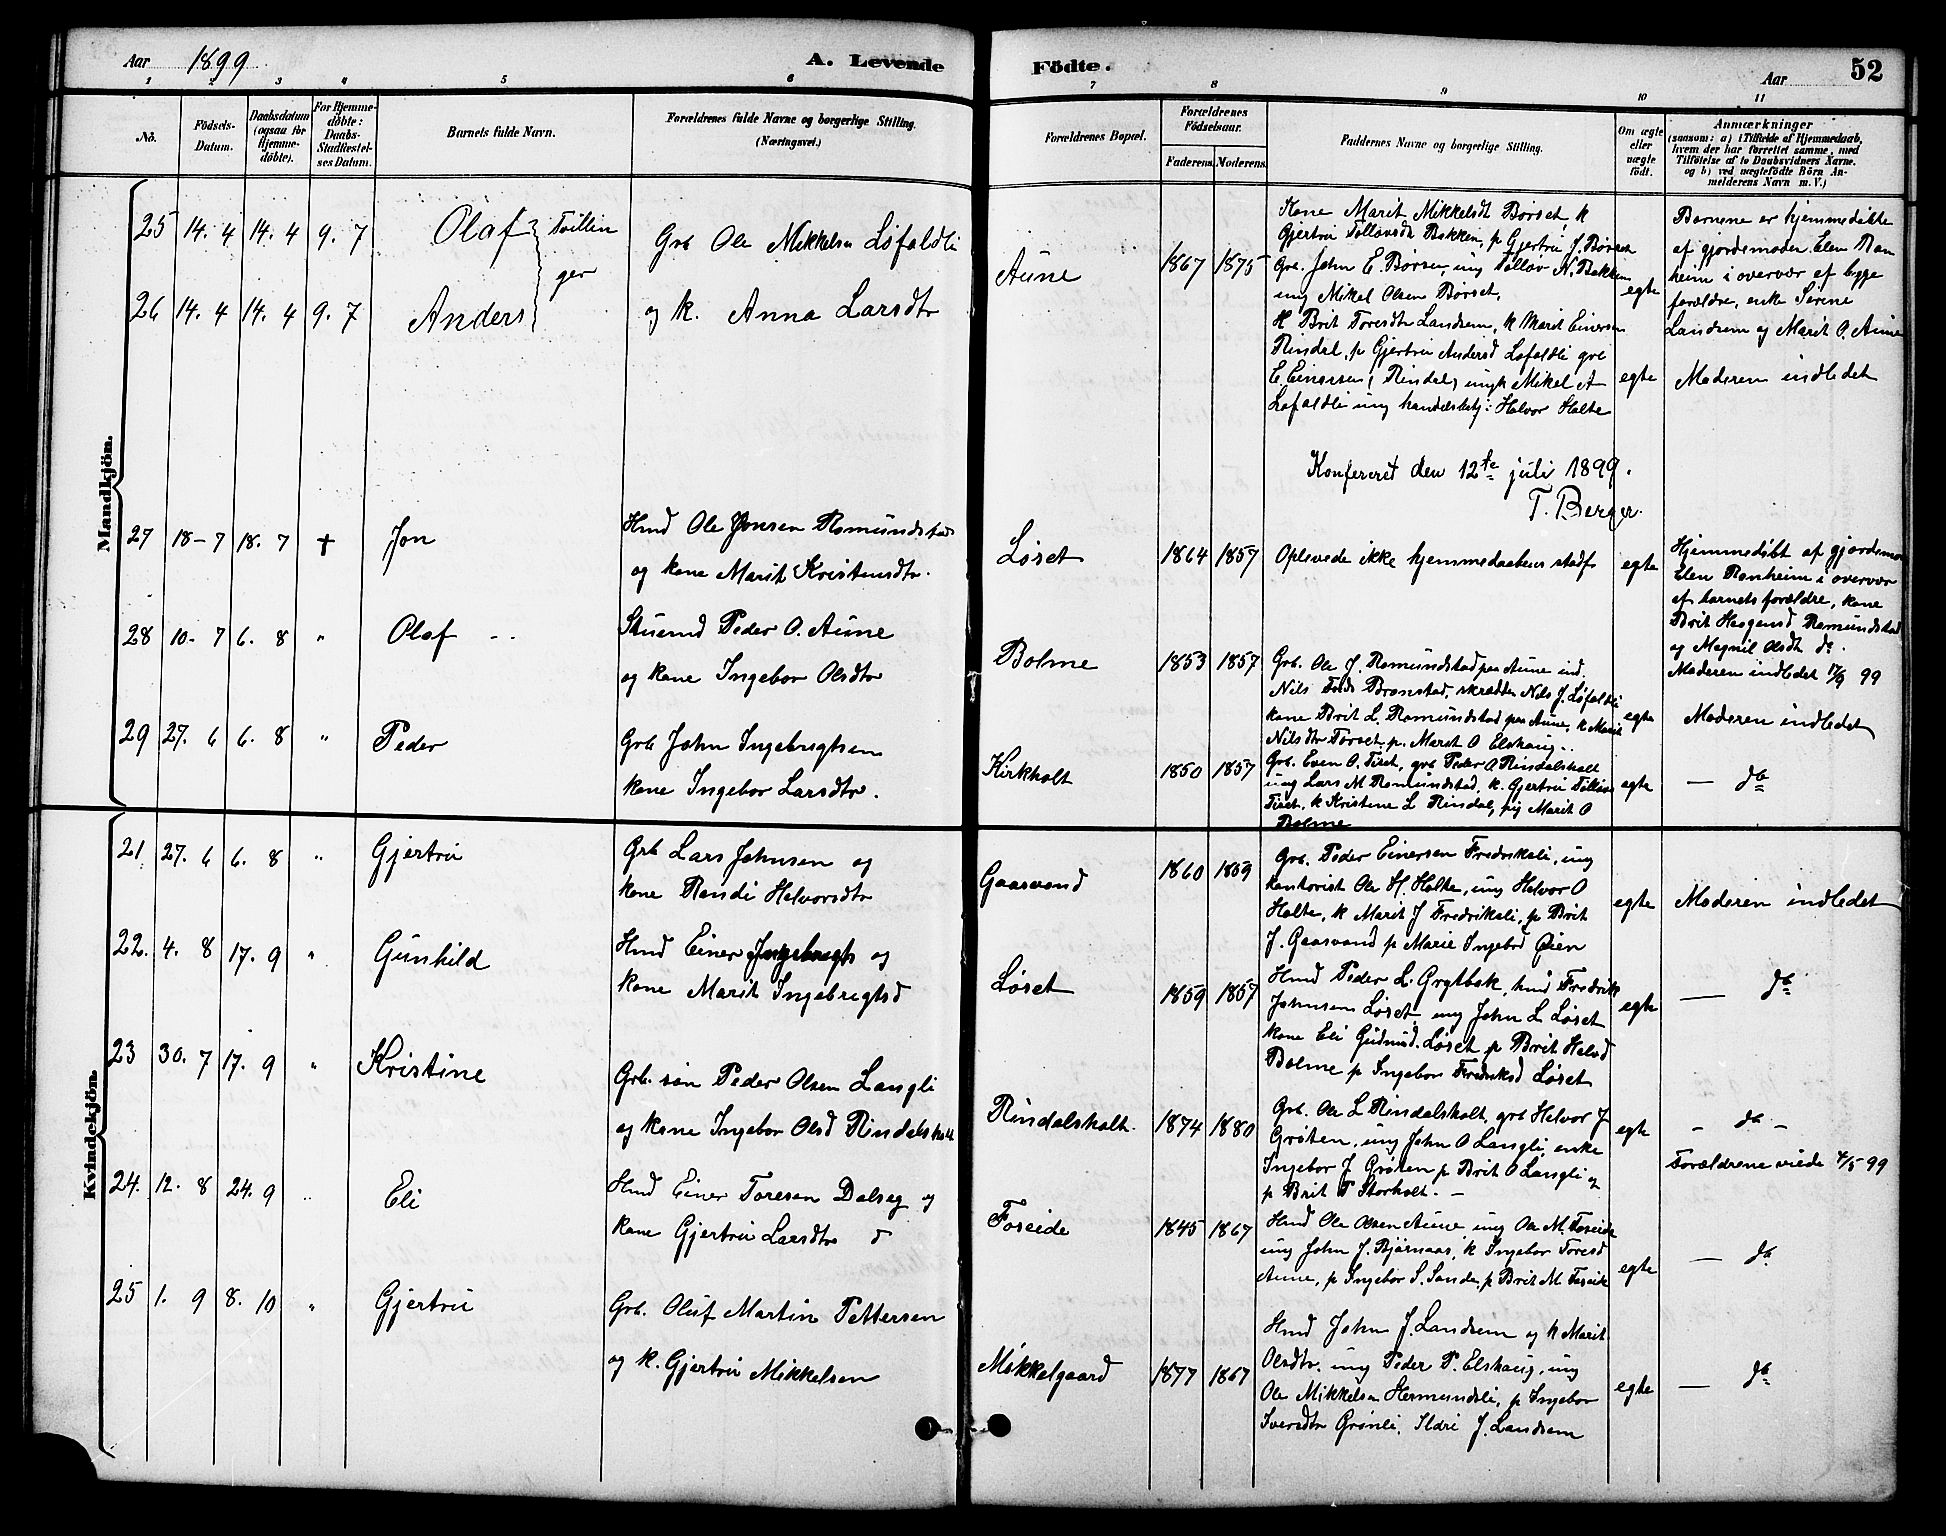 Aar 1899
A. Levende
Födte.
Aar
52
1 2 3 4 5 6 7 8 9 10 11
No.
Födsels-
Datum.
Daabsdatum
(ogsaa for
Hjemme-
døbte).
For Hjemme-
døbte:
Daabs-
Stadfæstel-
ses Datum.
Barnets fulde Navn.
Forældrenes fulde Navne og borgerlige Stilling.
(Næringsvei.)
Forældrenes Bopæl.
Forældrenes
Födselsaar.
Faderens. Moderens.
Faddernes Navne og borgerlige Stilling.
Om ægte
eller
uægte
födt.
Anmærkninger
(saasom: a) i Tilfælde af Hjemmedaab,
hvem der har forrettet samme, med
Tilföielse af to Daabsvidners Navne.
og b) ved uægtefödte Börn An-
melderens Navn m. V.)
Mandkjön.
25 14. 4 14. 4 9. 7 Olaf Tvillin
ger
Grb Ole Mikkelsen Løfaldli
26 14. 4 14. 4 9. 7 Anders
og k. Anna Larsdtr
Aune 1867 1875
Kone Marit Mikkelsdt Børset k
Gjertru Tølløvsdt Bakken, p Gjertru J. Børset
Grb. John E. Børsen, ung Tølløv N. Bakken,
ung Mikel Olsen Børset.
egte
Barnene er hjemmedøbte
af gjordemoder Elen Ran
heim i overvær af begge
forældre, enke Serine
Landsem og Marit O. Aune
H Brit Toresdtr Landsem, k Marit Einersen
Rindal, p Gjertru Andersd Løfaldli grb
E. Einersen, Rindal, ungk Mikel A
Løfaldli ung handelsbetj: Halvor Holte
egte
Moderen indledet
Konfereret den 12te juli 1899.
T. Berger.
27 18-7 18. 7 † Jon
Hmd Ole Jonsen Romundstad
og kone Marit Kristensdtr.
Løset 1864 1857 Oplevede ikke hjemmedaabens stadf egte
Hjemmedøbt af gjordemo
Elen Ranheim i overvær
af barnets forældre, kone
Brit Haagensd Romundstad
og Magnil Olsdt do.
Moderen indledet 17/9 99
28 10-7 6. 8 " Olaf
Stuemd Peder O. Aune
og kone Ingebor Olsdtr
Bolme 1853 1857
Grb. Ole J. Romundstad paa Aune ind.
Nils Brønstad, skrædder Nils J. Løfaldli
kone Brit L. Romundstad paa Aune, k Marit
Nilsdtr Torset, p. Marit O Elshaug.
egte
Moderen indledet
29 27. 6 6. 8 " Peder
Grb John Ingebrigtsen
kone Ingebor Larsdtr.
Kirkholt 1850 1857
Grb. Even O. Tiset, grb Peder O Rindalsholt
ung Lars M Romundstad, k. Gjertru Tølløvs
Tiset, k Kristine L Rindal, pig Marit O
Bolme
egte
— do
Kvindekjön.
21 27. 6 6. 8 " Gjertru
Grb Lars Johnsen og
kone Randi Halvorsdtr
Gaasvand 1860 1859
Grb. Peder Einersen Fredriksli, ung
kontorist Ole H. Holte, ung Halvor O
Holte, k Marit J Fredriksli, p Brit
J. Gaasvand p Marie Ingebrd Øien
egte
Moderen indledet
22. 4. 8 17. 9 " Gunhild
Hmd Einer Ingebrigts og
kone Marit Ingebrigtsd
Løset 1859 1857
Hmd Peder L. Grytbak, hmd Fredrik
Johnsen Løset, ung John L Løset
kone Eli Gudmd. Løset p Brit Halvd
Bolme p Ingebor Fredriksd Løset
egte
— do
23 30. 7 17. 9 " Kristine
Grb. søn Peder Olsen Langli
og kone Ingebor Olsd Rindalsholt
Rindalsholt. 1874 1880
Grb. Ole L Rindalsholt, grb Halvor J
Grøten, ung John O Langli, enke
Ingebor J Grøten p Brit O Langli og
p Brit P Storholt. —
egte
— do —
Forældrene viede 4/5 99
24. 12. 8 24. 9 " Eli
Hmd Einer Toresen Dalseg og
kone Gjertru Larsdtr
Foseide 1845 1867
Hmd Ole Olsen Aune ung Ole M. Foseide
ung John J. Bjørnaas, k Ingebor Toresd
Aune, p Ingebor S. Sande, p Brit M. Foseide
egte
— do
25 1. 9 8. 10 " Gjertru
Grb. Oluf Martin Pettersen
og k. Gjertru Mikkelsen
Mikkelgaard 1877 1867
Hmd John J. Landsem og k Marit
Olsdtr. ung Peder P. Elshaug, ung
Ole Mikkelsen Hermundsli, p Ingebor
Iversdtr Grønli, Ildri J. Landsem
egte
— do